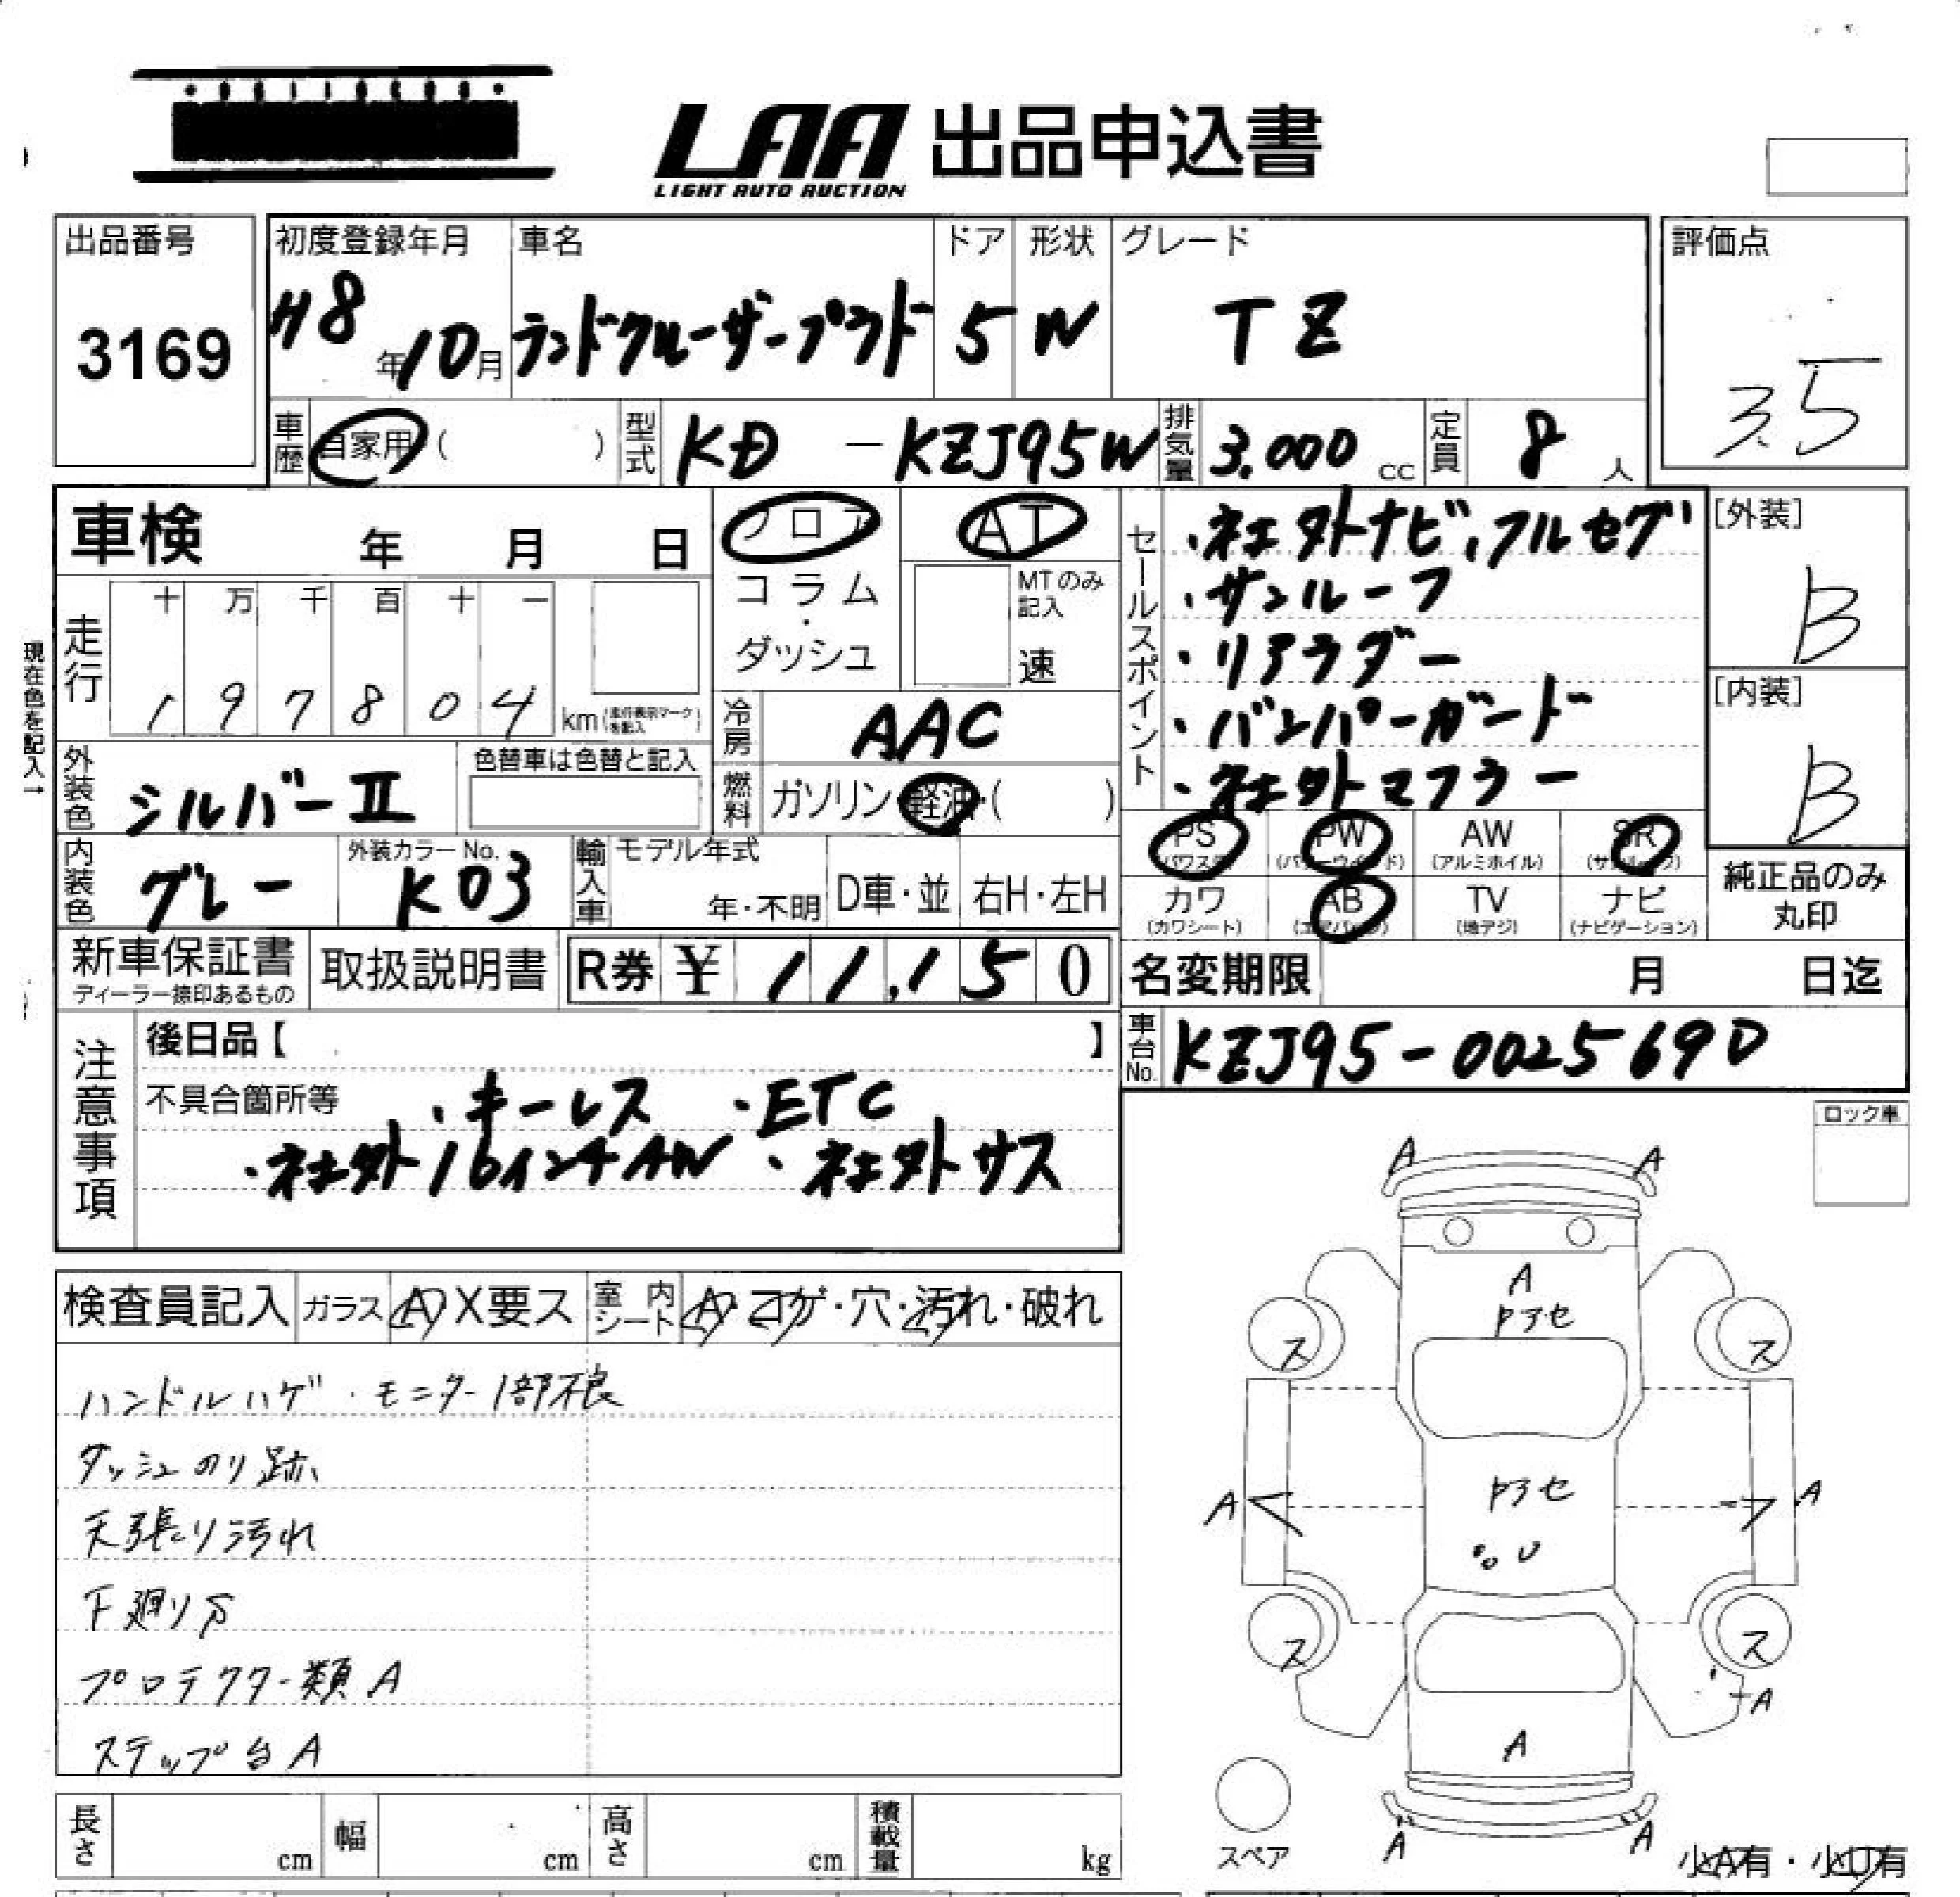 LAA 出品申込書
LIGHT AUTO AUCTION
出品番号
3169
初度登録年月
H8年10月
車名
ランドクルーザープラド
ドア
5
形状
W
グレード
TZ
評価点
3.5
車歴 自家用 ( )
型式 KD-KZJ95W
排気量 3.000 cc
定員 8 人
車検 年 月 日
フロア
コラム・ダッシュ
AT
MTのみ記入
速
セールスポイント
・社外ナビ、フルセグ
・サンルーフ
・リアラダー
・バンパーガード
・社外マフラー
[外装]
B
[内装]
B
現在色を記入→
走行
十 万 千 百 十 一
1 9 7 8 0 4 km (走行表示マークを記入)
冷房 AAC
燃料 ガソリン・軽油・( )
外装色 シルバーⅡ
色替車は色替と記入
内装色 グレー
外装カラーNo. K03
輸入車 モデル年式 年・不明 D車・並 右H・左H
PS (パワステ) PW (パワーウインド) AW (アルミホイル) SR (サンルーフ)
カワ (カワシート) AB (エアバッグ) TV (地デジ) ナビ (ナビゲーション)
純正品のみ
丸印
新車保証書
ディーラー捺印あるもの
取扱説明書
R券 ¥ 11,150
名変期限 月 日迄
車台No. KZJ95-0025690
注意事項
後日品【 】
不具合箇所等 ・キーレス ・ETC
・社外16インチAW ・社外サス
ロック車
検査員記入 ガラス A X要ス 室内シート A・コゲ・穴・汚れ・破れ
ハンドルハゲ・モニター1部不良
ダッシュのり跡
天張り汚れ
下廻りS
プロテクター類A
ステップ台A
A A
A
トアセ
ス ス
トアセ
A A
U
ス ス
A
A
A A
スペア
小A有・小U有
長さ cm 幅 cm 高さ cm 積載量 kg